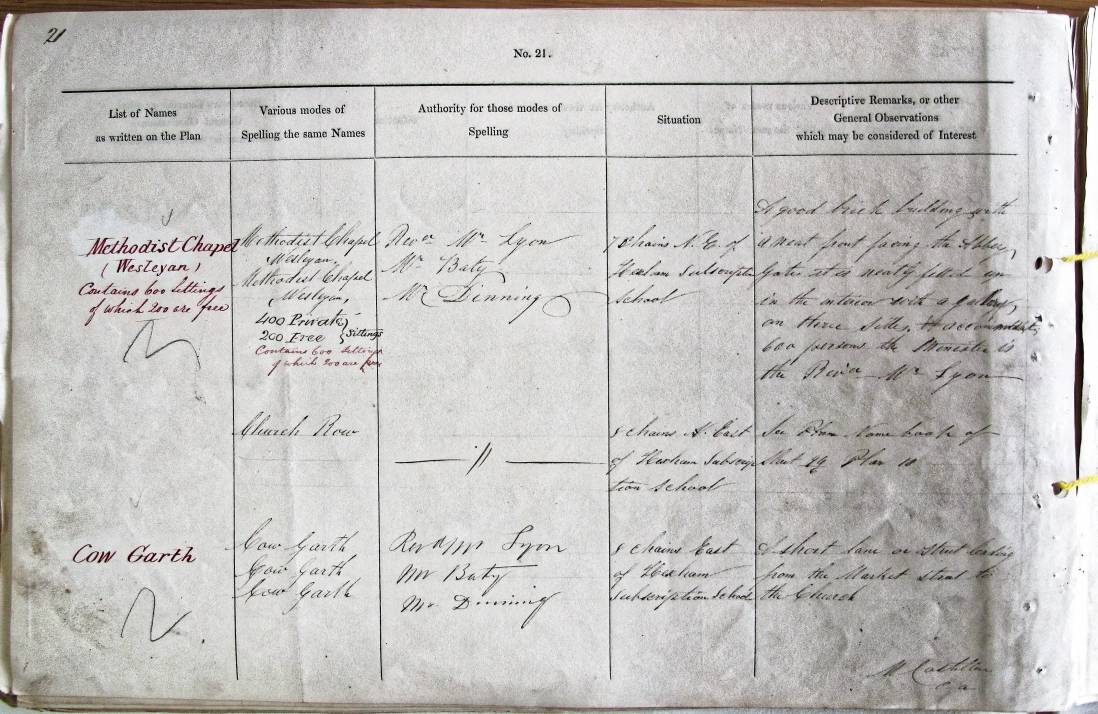 21
No. 21.
List of Names
as written on the Plan
Various modes of
Spelling the same Names
Authority for those modes of
Spelling
Situation
Descriptive Remarks, or other
General Observations
which may be considered of Interest
Methodist Chapel
(Wesleyan)
Contains 600 sittings
of which 200 are free
Methodist Chapel
Wesleyan,
Methodist Chapel
Wesleyan,
400 Private
200 Free } Sittings
Contains 600 Sittings
of which 200 are free
Revd. Mr. Lyon
Mr. Baty
Mr. Dinning
7 Chains N. E. of
Hexham Subscription
School
A good brick building with
a neat front facing the Abbey
Gate, it is neatly fitted up
in the interior with a gallery,
on three sides, accommodates
600 persons the Minister is
the Revd. Mr. Lyon
Church Row
〃
8 chains N. East
of Hexham Subscrip
tion School
See Plan Name book of
Sheet 94 Plan 10
Cow Garth
Cow Garth,
Cow Garth
Cow Garth
Revd Mr Lyon
Mr Baty
Mr. Dinning
8 chains East
of Hexham
Subscription School
A short lane or street leading
from the Market street to
the Church